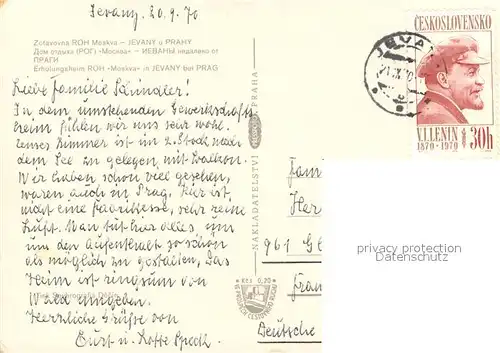 Jevany, 20.9.70
Zotavovna ROH Moskva – JEVANY u PRAHY
Дом отдыха (РОГ) «Москва» – ИЕВАНЫ недалеко от
ПРАГИ
Erholungsheim ROH «Moskva» in JEVANY bei PRAG
Liebe Familie
In dem umstehenden Gewerkschafts
heim fühlen wir uns sehr wohl.
Unser Zimmer ist im 2. Stock nach
dem See zu gelegen mit Balkon.
Wir haben schon viel gesehen,
waren auch in Prag. Hier ist
nicht eine sehr reine
Luft. Man tut hier alles, um
uns den Aufenthalt so schön
als möglich zu gestalten. Das
Heim ist ringsum von
Wald umgeben.
Herzliche Grüße von
Curt u. Lotte
NAKLADATELSTVÍ PRAHA
Kčs 0,30
JEVANY
ČESKOSLOVENSKO
V.I.LENIN
1870-1970 30h
Fam
Her
961 Gl
Fran
Deutsche
privacy protection
Datenschutz